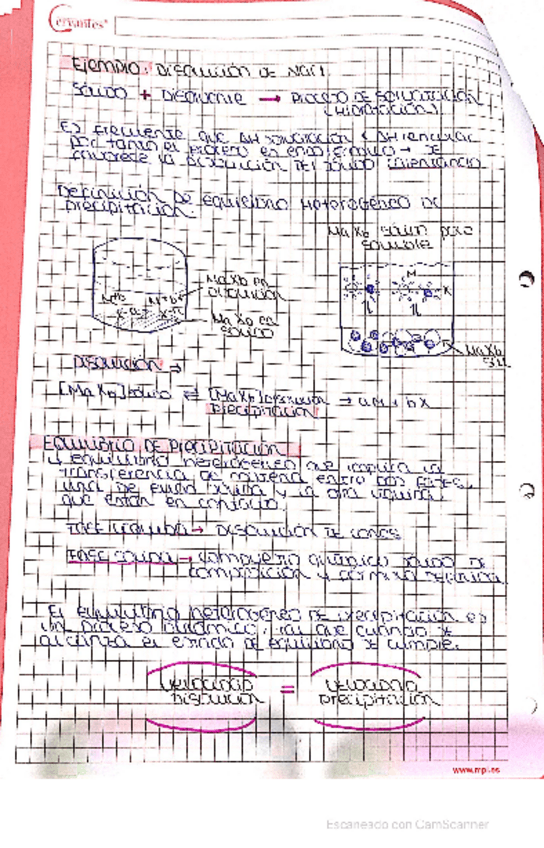 Cervantes
Ejemplo: Disolución de NaCl
Sólido + Disolvente → Proceso de solvatación
(Hidratación)
Es frecuente que ΔH solvatación < ΔH reticular
por tanto el proceso es endotérmico → se
favorece la disolución del sólido calentando
Definición de equilibrio heterogéneo de
precipitación.
MaXb sólido poco
soluble
MaXb en
disolución
MaXb en
sólido
MaXb
Disolución →
[MaXb]sólido ⇌ [MaXb]disolución → aM + bX
precipitación
Equilibrio de Precipitación
equilibrio heterogéneo que implica la
transferencia de materia entre dos fases,
una de ellas sólida y la otra líquida
que están en contacto.
Fase líquida → Disolución de iones
Fase sólida → compuesto químico sólido de
composición y fórmula definida
El equilibrio heterogéneo de precipitación es
un proceso dinámico, tal que cuando se
alcanza el estado de equilibrio se cumple:
velocidad = velocidad
disolución precipitación
www.mpl.es
Escaneado con CamScanner